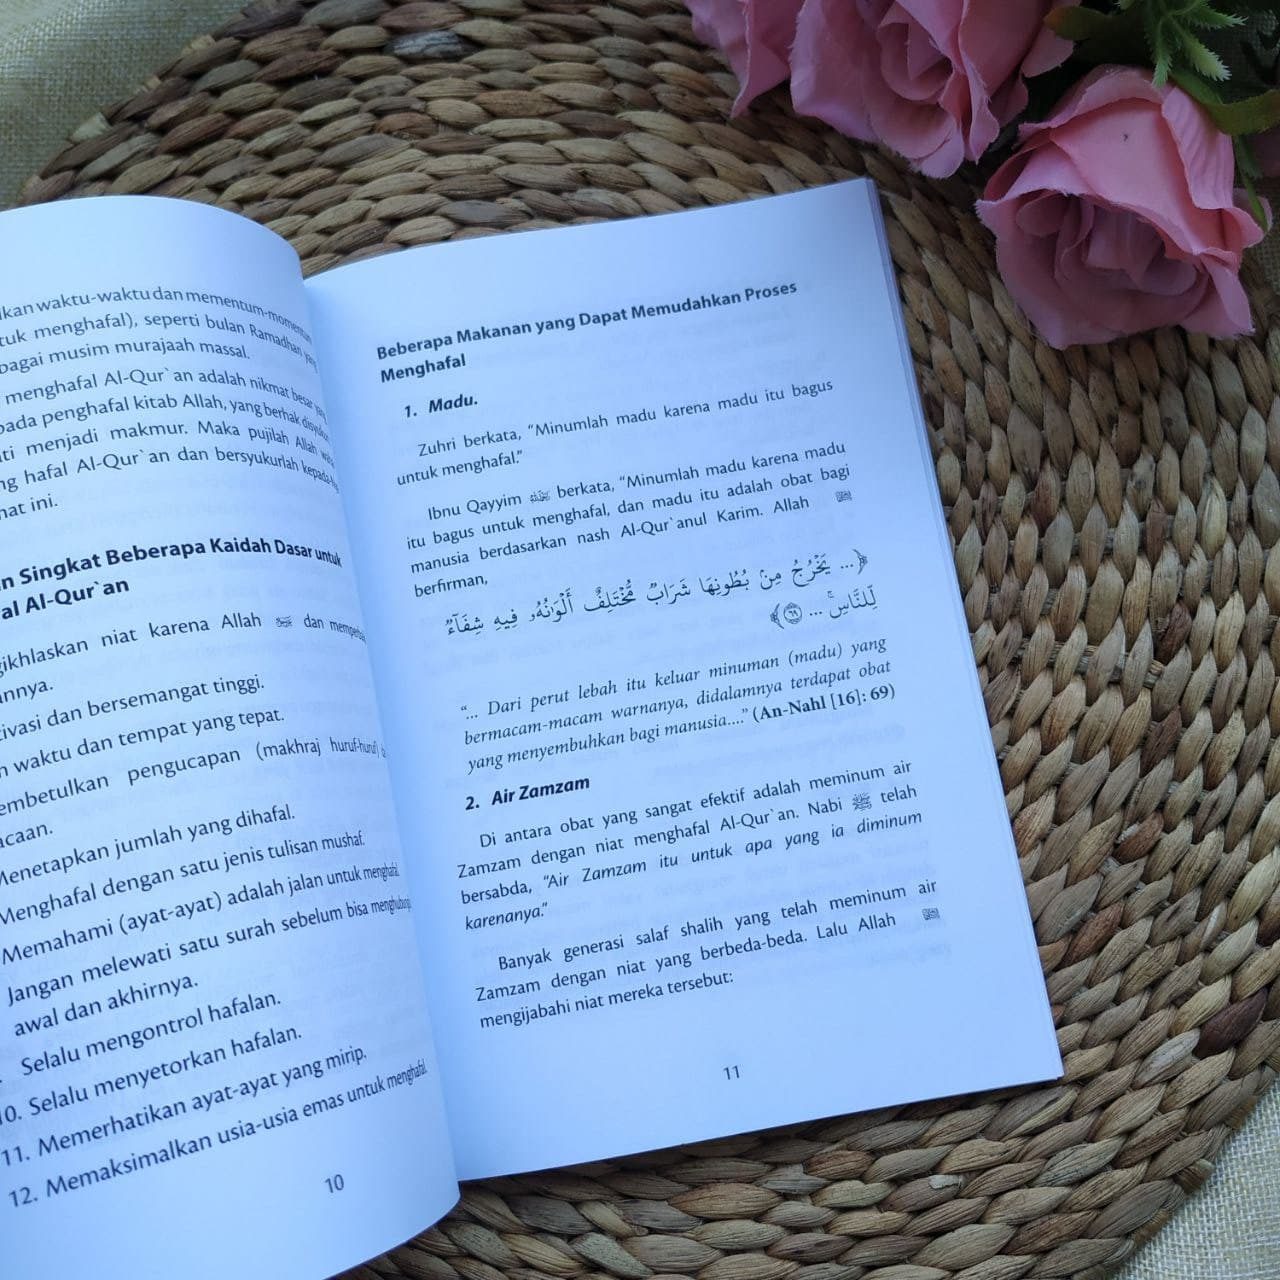 waktu-waktu dan mementum-momentum
menghafal), seperti bulan Ramadhan yang
bagai musim murajaah massal.
menghafal Al-Qur`an adalah nikmat besar yang
pada penghafal kitab Allah, yang berhak disyukuri
menjadi makmur. Maka pujilah Allah
hafal Al-Qur`an dan bersyukurlah
ini.
Singkat Beberapa Kaidah Dasar untuk
Al-Qur`an
niat karena Allah ﷻ dan
dan bersemangat tinggi.
waktu dan tempat yang tepat.
pengucapan (makhraj huruf-huruf)
Menetapkan jumlah yang dihafal.
Menghafal dengan satu jenis tulisan mushaf.
Memahami (ayat-ayat) adalah jalan untuk menghafal.
Jangan melewati satu surah sebelum bisa
awal dan akhirnya.
Selalu mengontrol hafalan.
10. Selalu menyetorkan hafalan.
11. Memerhatikan ayat-ayat yang mirip.
12. Memaksimalkan usia-usia emas untuk menghafal.
10
Beberapa Makanan yang Dapat Memudahkan Proses
Menghafal
1. Madu.
Zuhri berkata, “Minumlah madu karena madu itu bagus
untuk menghafal.”
Ibnu Qayyim berkata, “Minumlah madu karena madu
itu bagus untuk menghafal, dan madu itu adalah obat bagi
manusia berdasarkan nash Al-Qur`anul Karim. Allah ﷻ
berfirman,
﴿... يَخْرُجُ مِنۢ بُطُونِهَا شَرَابٌ مُّخْتَلِفٌ أَلْوَٰنُهُۥ فِيهِ شِفَآءٌ
لِّلنَّاسِۚ ... ٦٩﴾
“... Dari perut lebah itu keluar minuman (madu) yang
bermacam-macam warnanya, didalamnya terdapat obat
yang menyembuhkan bagi manusia....” (An-Nahl [16]: 69)
2. Air Zamzam
Di antara obat yang sangat efektif adalah meminum air
Zamzam dengan niat menghafal Al-Qur`an. Nabi ﷺ telah
bersabda, “Air Zamzam itu untuk apa yang ia diminum
karenanya.”
Banyak generasi salaf shalih yang telah meminum air
Zamzam dengan niat yang berbeda-beda. Lalu Allah ﷻ
mengijabahi niat mereka tersebut:
11